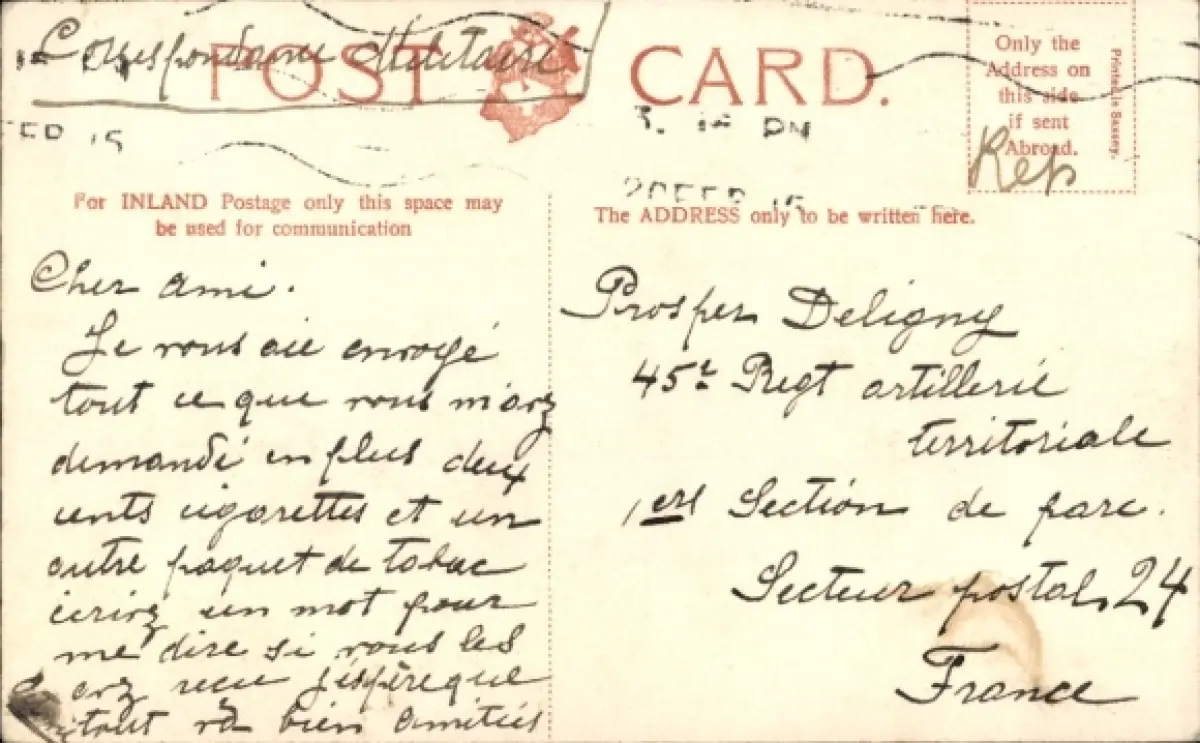 Correspondance Militaire
POST CARD.
Only the
Address on
this side
if sent
Abroad.
Printed in Saxony.
Rep
FEB 15
3. PM
20 FEB 15
For INLAND Postage only this space may
be used for communication
The ADDRESS only to be written here.
Cher ami.
Je vous aie envoyé
tout ce que vous m'avez
demandé en plus deux
cents cigarettes et un
autre paquet de tabac
écrivez un mot pour
me dire si vous les
avez reçu j'éspère que
tout va bien amitiés
Prosper Deligny
45e Regt artillerie
territoriale
1ere Section de parc.
Secteur postal 24
France